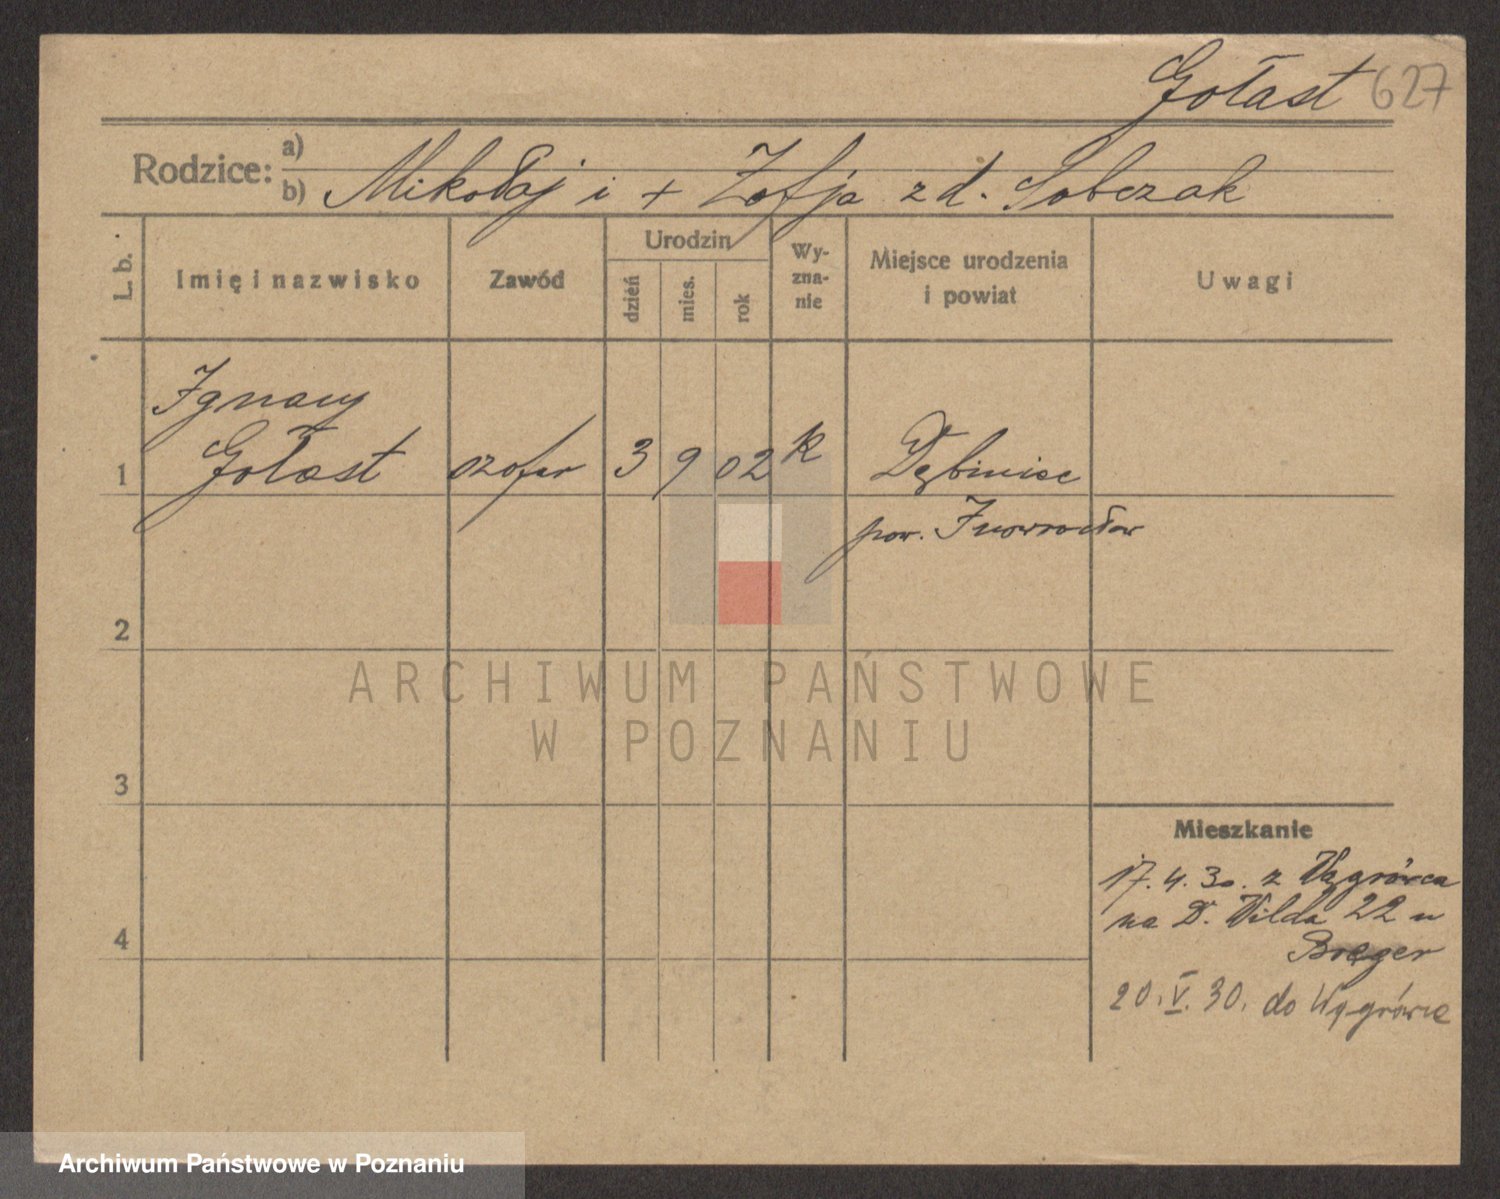 Gołast 627
Rodzice: a)
b) Mikołaj i + Zofja z d. Sobczak
L. b.
Imię i nazwisko
Zawód
Urodzin
dzień
mies.
rok
Wy-
zna-
nie
Miejsce urodzenia
i powiat
Uwagi
Ignacy
1 Gołast szofer 3 9 02 k Dębiniec
pow. Inowrocław
2
3
4
Mieszkanie
17.4.30. z Wągrówca
na D. Wilda 22 u
20.V.30. do Wągrówca
ARCHIWUM PAŃSTWOWE
W POZNANIU
Archiwum Państwowe w Poznaniu